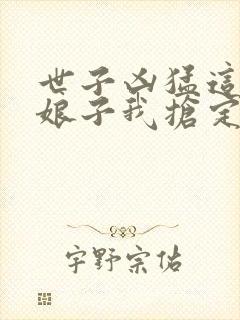 世子凶猛這
娘子我搶定
宇野宗佑